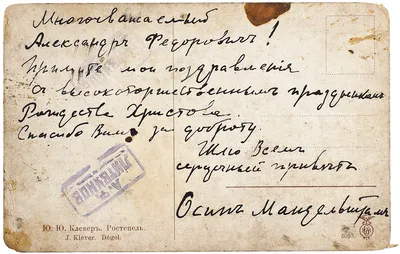 Многоуважаемый
Александръ Федоровичъ!
Примите мои поздравленія
съ высокоторжественнымъ праздникомъ
Рождества Христова
Спасибо Вамъ за доброту.
Шлю Всемъ
сердечный приветъ
Осипъ Мандельштамъ
ЛИТВИНОВ
Ю. Ю. Клеверъ. Ростепель.
J. Klever. Dégel.